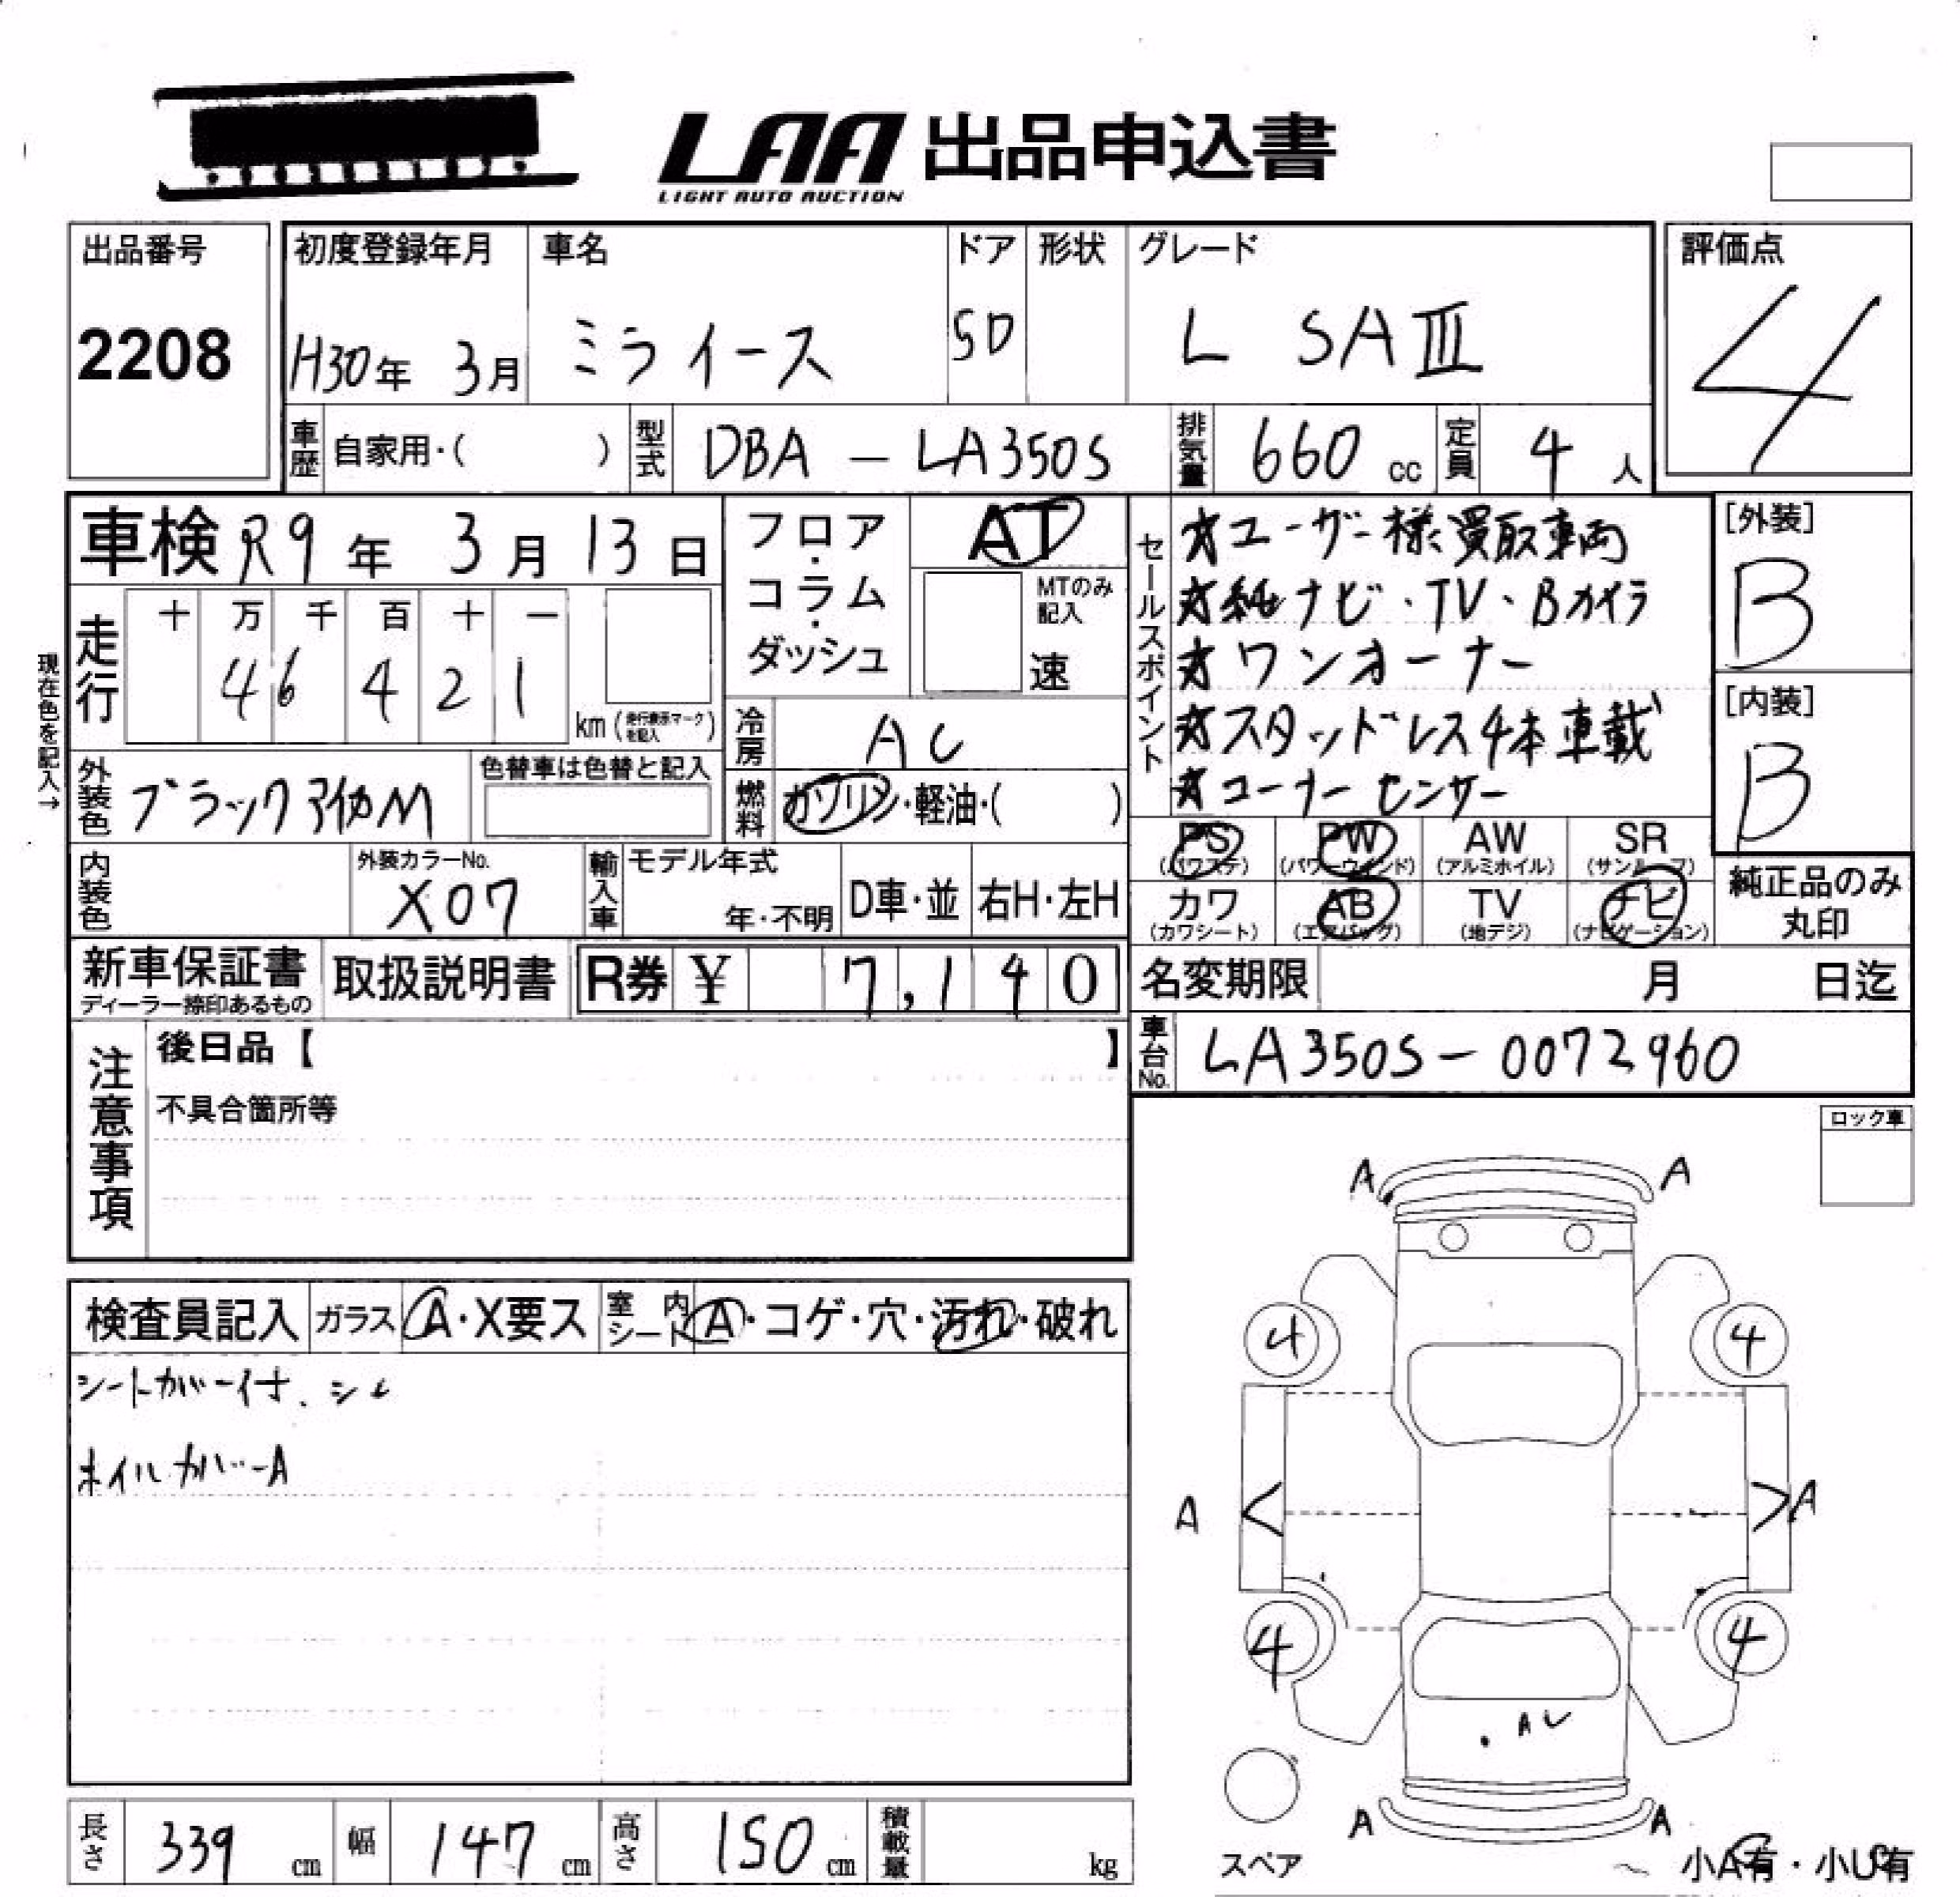 LAA 出品申込書
LIGHT AUTO AUCTION
出品番号
2208
初度登録年月
H30年 3月
車名
ミライース
ドア
5D
形状
グレード
L SAⅢ
評価点
4
車歴 自家用・( )
型式 DBA － LA350S
排気量 660 cc
定員 4 人
車検 R9 年 3 月 13 日
走行
十 万 千 百 十 一
4 6 4 2 1
km (走行表示マークを記入)
現在色を記入→
フロア・コラム・ダッシュ
AT
MTのみ記入
速
冷房 AC
燃料 ガソリン・軽油・( )
外装色 ブラックマイカM
色替車は色替と記入
内装色
外装カラーNo.
X07
輸入車
モデル年式
年・不明
D車・並
右H・左H
セールスポイント
☆ユーザー様買取車両
☆純ナビ・TV・Bカメラ
☆ワンオーナー
☆スタッドレス4本車載
☆コーナーセンサー
[外装]
B
[内装]
B
PS (パワステ)
PW (パワーウインド)
AW (アルミホイル)
SR (サンルーフ)
カワ (カワシート)
AB (エアバッグ)
TV (地デジ)
ナビ (ナビゲーション)
純正品のみ丸印
新車保証書
ディーラー捺印あるもの
取扱説明書
R券 ¥ 7,140
名変期限 月 日迄
車台No. LA350S－0072960
注意事項
後日品【 】
不具合箇所等
ロック車
検査員記入
ガラス A・X要ス
室内シート A・コゲ・穴・汚れ・破れ
シートカバー付、シミ
ホイルカバーA
A A
4 4
A < > A
4 4
A A
スペア
小A有・小U有
長さ 339 cm
幅 147 cm
高さ 150 cm
積載量 kg